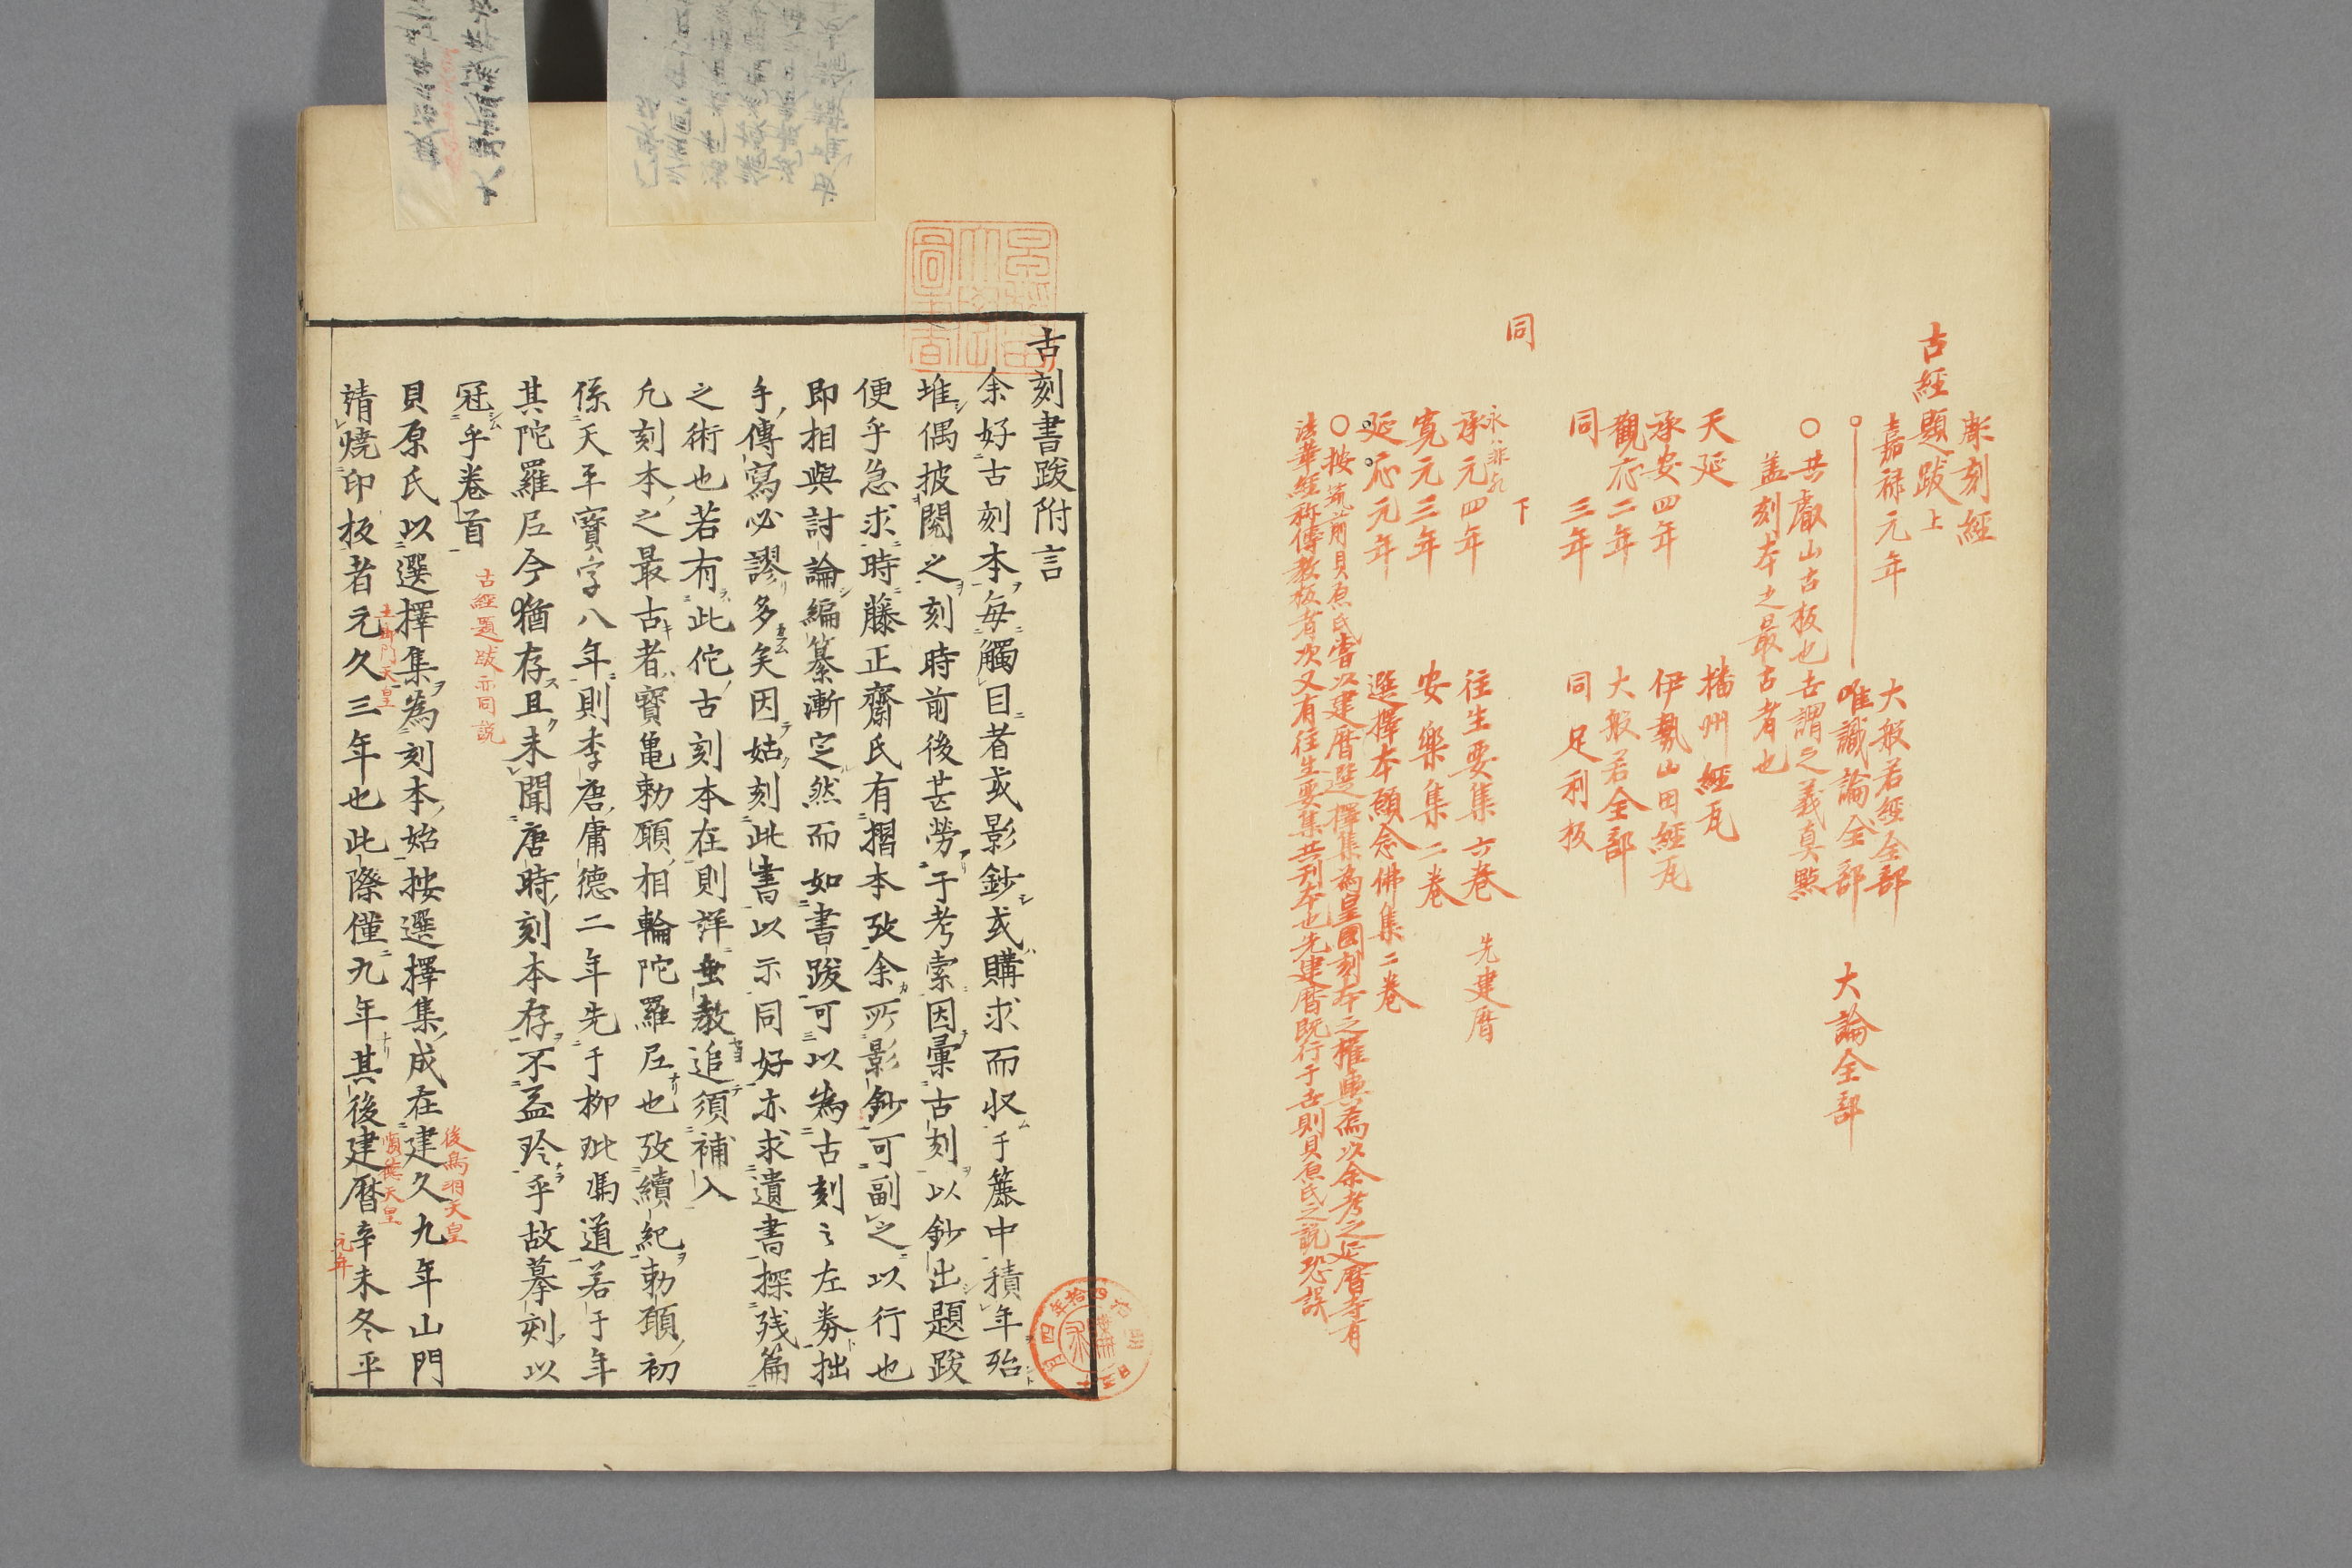 彫刻經
古經題跋上
嘉禄元年　大般若經全部
唯識論全部　大論全部
〇共叡山古板也古謂之義真點
蓋刻本之最古者也
天延　播州經瓦
承安四年　伊勢山田經瓦
觀応二年　大般若全部
同　三年　同足利板
同　下
承元四年　往生要集六卷　先建暦
寛元三年　安樂集二卷
延応元年　選擇本願念佛集二卷
〇按筑前貝原氏嘗以建暦選擇集為皇國刻本之權輿焉以余考之延暦寺有
法華經称傳教板者次又有往生要集共刊本也先建暦既行于世則貝原氏之説恐誤
古刻書跋附言
余好古刻本毎觸目者或影鈔或購求而収于簏中積年殆
堆偶披閲之刻時前後甚勞于考索因彙古刻以鈔出題跋
便乎急求時藤正齋氏有摺本攷余所影鈔可副之以行也
即相與討論編纂漸定然而如書跋可以為古刻之左券拙
手傳寫必謬多矣因姑刻此書以示同好亦求遺書探残篇
之術也若有此佗古刻本在則詳垂教追須補入
凢刻本之最古者寶亀勅願相輪陀羅尼也攷續紀勅願初
係天平寶字八年則李唐庸德二年先于柳玭馮道若于年
其陀羅尼今猶存且未聞唐時刻本存不益珍乎故摹刻以
冠乎卷首
古經題跋亦同説
貝原氏以選擇集為刻本始按選擇集成在建久九年山門
後鳥羽天皇
靖燒印板者元久三年也此際僅九年其後建暦辛未冬平
土御門天皇
順德天皇
元年